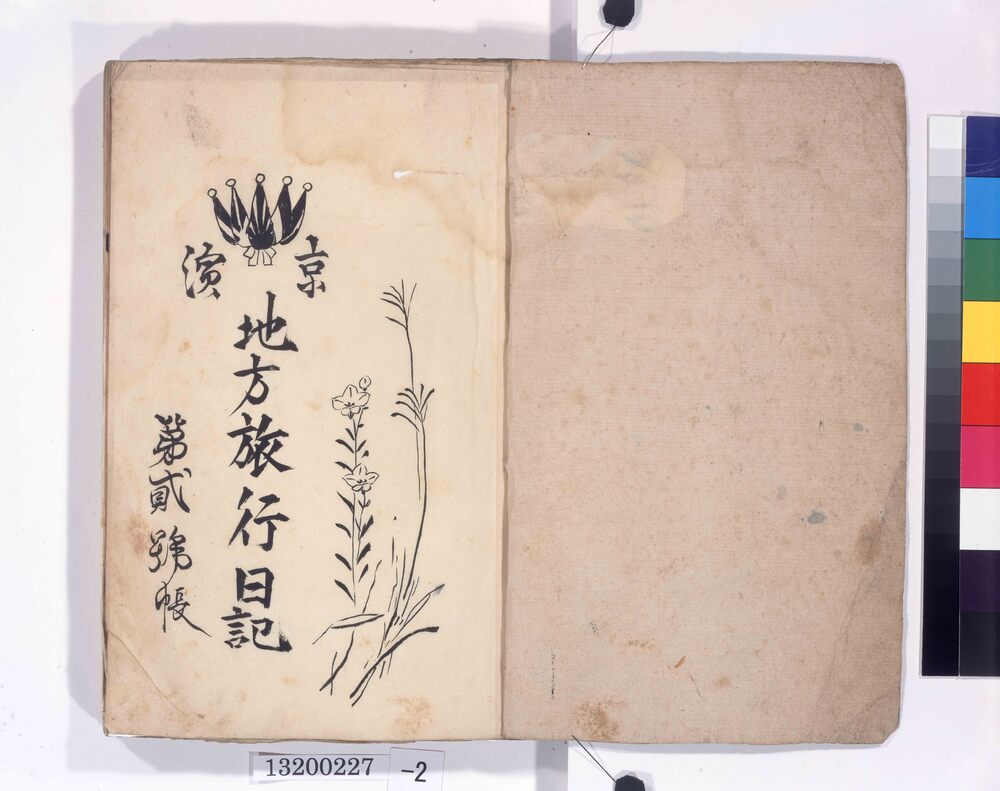 京濱
地方旅行日記
第貳號帳
13200227 -2